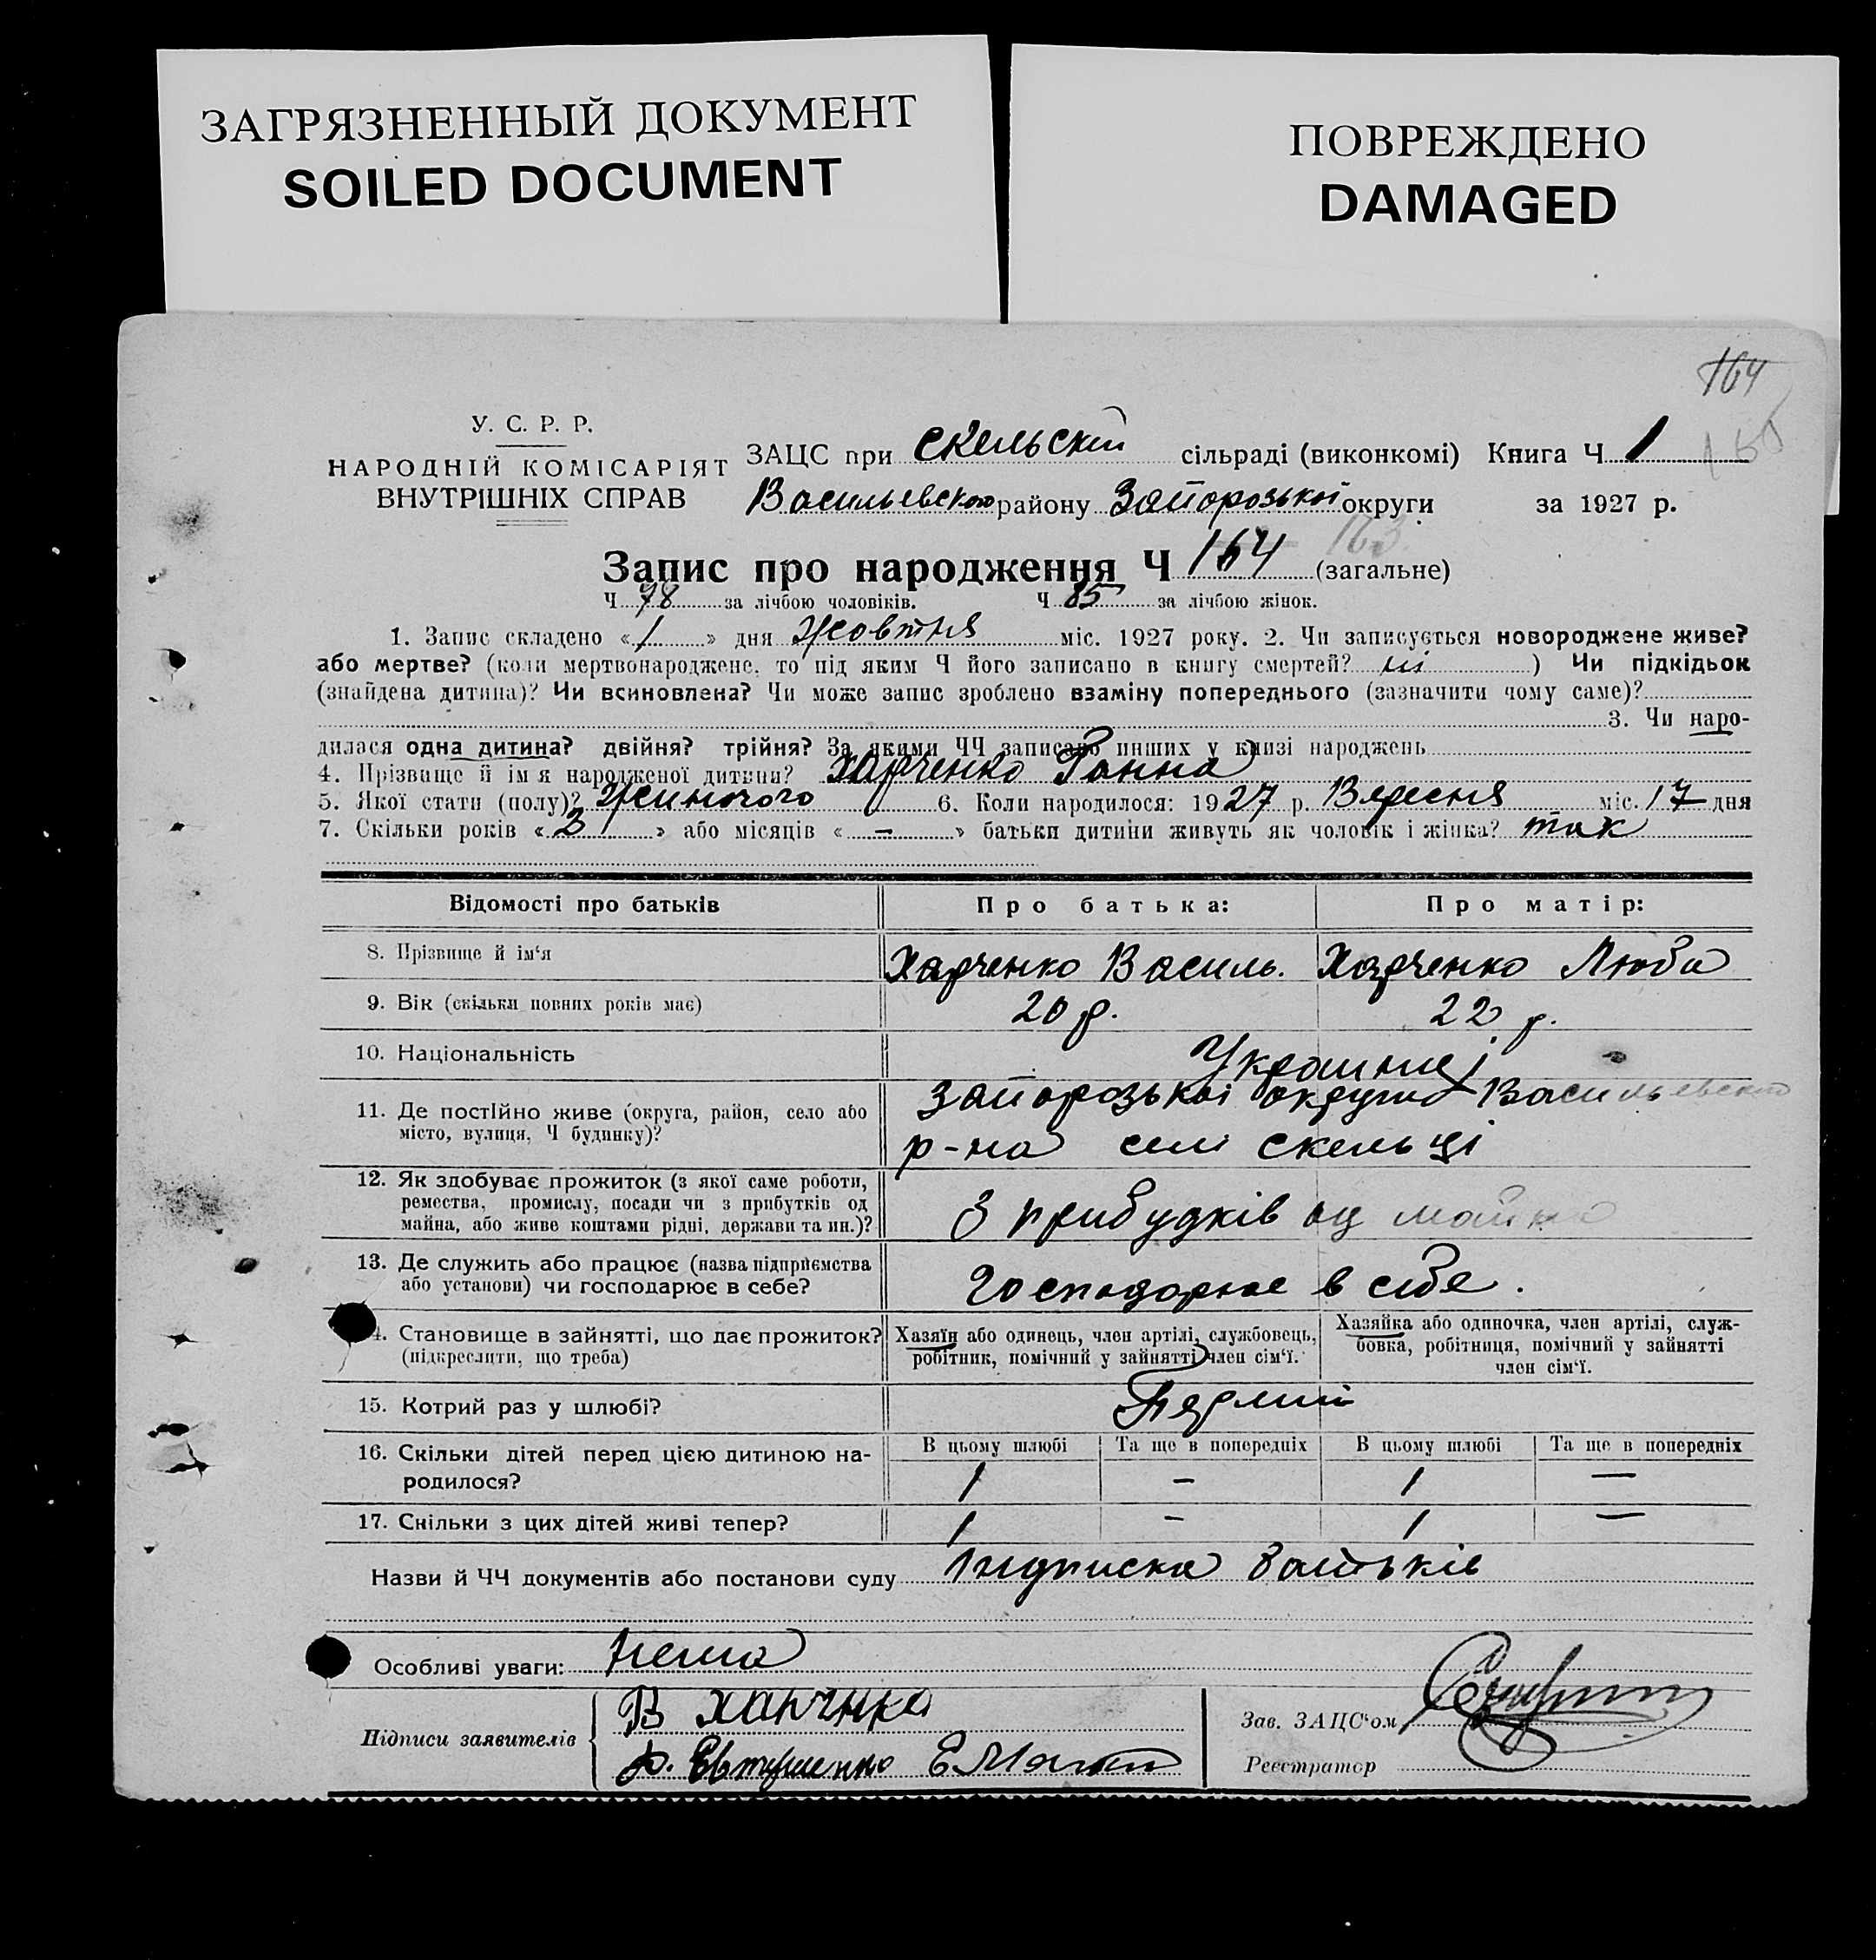 ЗАГРЯЗНЕННЫЙ ДОКУМЕНТ
SOILED DOCUMENT
ПОВРЕЖДЕНО
DAMAGED
164
У. С. Р. Р.
НАРОДНІЙ КОМІСАРІЯТ
ВНУТРІШНІХ СПРАВ
ЗАЦС при Скельскій сільраді (виконкомі) Книга Ч 1
Васильевского району Запорозькоі округи за 1927 р.
Запис про народження Ч 164 163 (загальне)
Ч 78 за лічбою чоловіків. Ч 85 за лічбою жінок.
1. Запис складено « 1 » дня Жовтня міс. 1927 року. 2. Чи записується новороджене живе?
або мертве? (коли мертвонароджене, то під яким Ч його записано в книгу смертей? ні ) Чи підкідьок
(знайдена дитина)? Чи всиновлена? Чи може запис зроблено взаміну попереднього (зазначити чому саме)?
3. Чи наро-
дилася одна дитина? двійня? трійня? За якими ЧЧ записано инших у книзі народжень
4. Прізвище й ім'я народженої дитини? Харченко Ганна
5. Якої стати (полу)? Жиночого 6. Коли народилося: 1927 р. Вересня міс. 17 дня
7. Скільки років « 3 » або місяців « – » батьки дитини живуть як чоловік і жінка? так
Відомості про батьків Про батька: Про матір:
8. Прізвище й ім'я Харченко Василь. Харченко Люба
9. Вік (скільки повних років має) 20 р. 22 р.
10. Національність Украинці
11. Де постійно живе (округа, район, село або
місто, вулиця, Ч будинку)?
Запорозькоі округи Васильевского
р-на селі Скельці
12. Як здобуває прожиток (з якої саме роботи,
ремества, промислу, посади чи з прибутків од
майна, або живе коштами рідні, держави та ин.)?
З прибудків од майна
13. Де служить або працює (назва підприємства
або установи) чи господарює в себе?
Господорює в себе.
4. Становище в зайнятті, що дає прожиток?
(підкреслити, що треба)
Хазяїн або одинець, член артілі, службовець,
робітник, помічний у зайнятті член сім'ї.
Хазяйка або одиночка, член артілі, служ-
бовка, робітниця, помічний у зайнятті
член сім'ї.
15. Котрий раз у шлюбі? Перший
16. Скільки дітей перед цією дитиною на-
родилося?
В цьому шлюбі Та ще в попередніх В цьому шлюбі Та ще в попередніх
1 – 1 –
17. Скільки з цих дітей живі тепер? 1 – 1 –
Назви й ЧЧ документів або постанови суду Підписка батьків
Особливі уваги: Нема
Підписи заявителів
В Харчнко
Зав. ЗАЦС'ом
Реєстратор